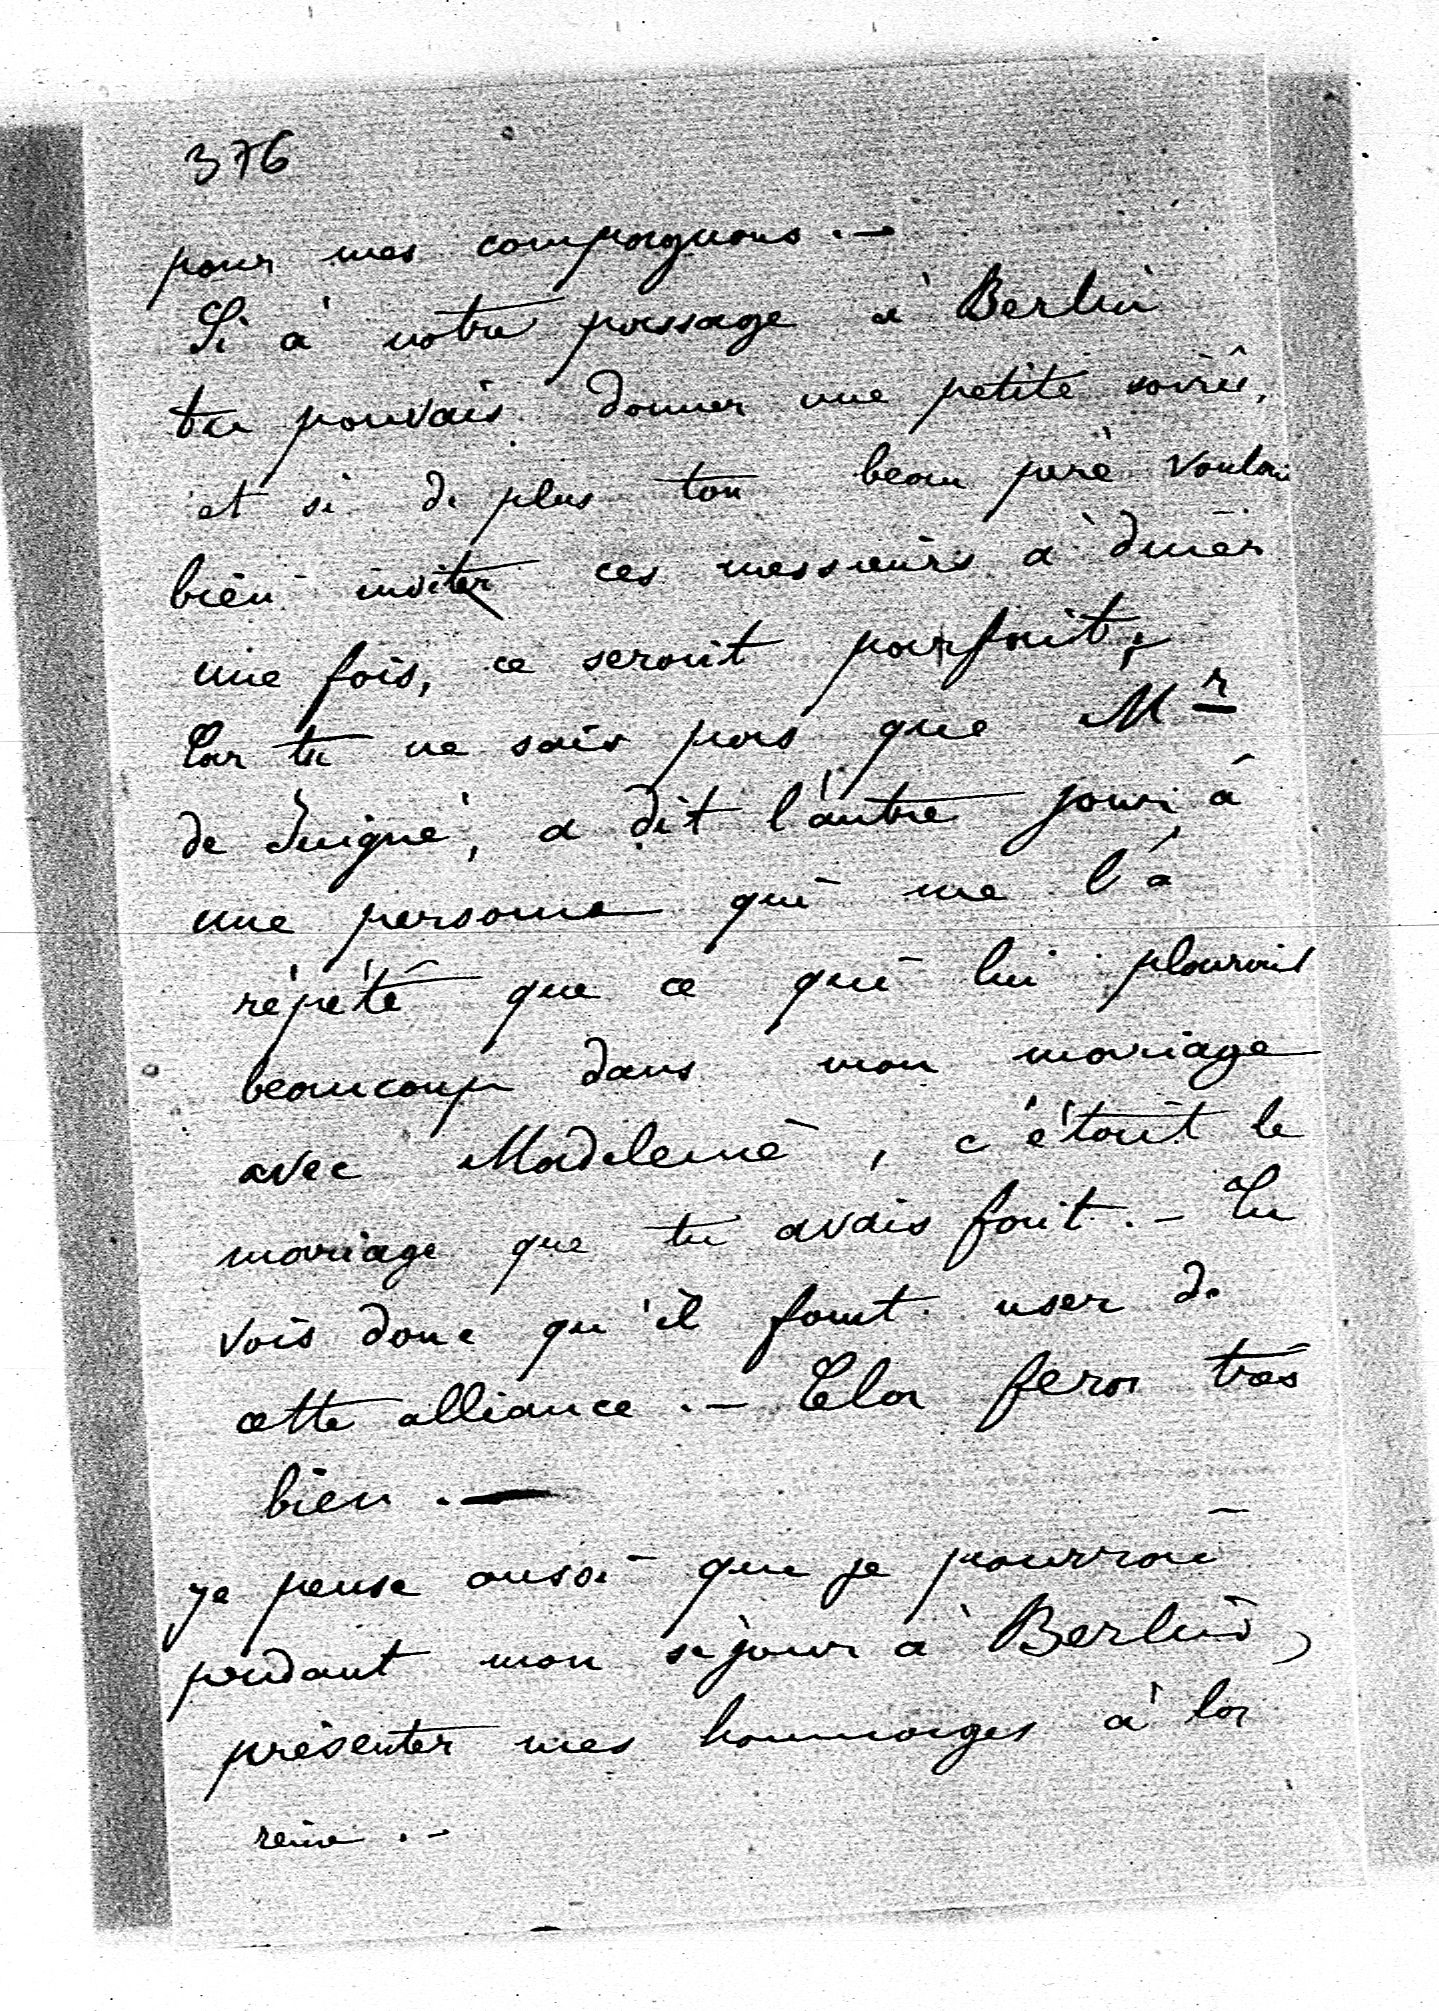 376
pour mes compagnons. —
Si à notre passage à Berlin
tu pouvais donner une petite soirée,
et si de plus ton beau père voulai
bien inviter ces messieurs à diner
une fois, ce serait parfait,
Car tu ne sais pas que Mr
de Juigné, a dit l'autre jour à
une personne qui me l'a
répété que ce qui lui plairait
beaucoup dans mon mariage
avec Madeleine, c'était le
mariage que tu avais fait. — Tu
vois donc qu'il faut user de
cette alliance. — Cela fera très
bien. —
je pense aussi que je pourrai
pendant mon séjour à Berlin,
présenter mes hommages à la
reine. —